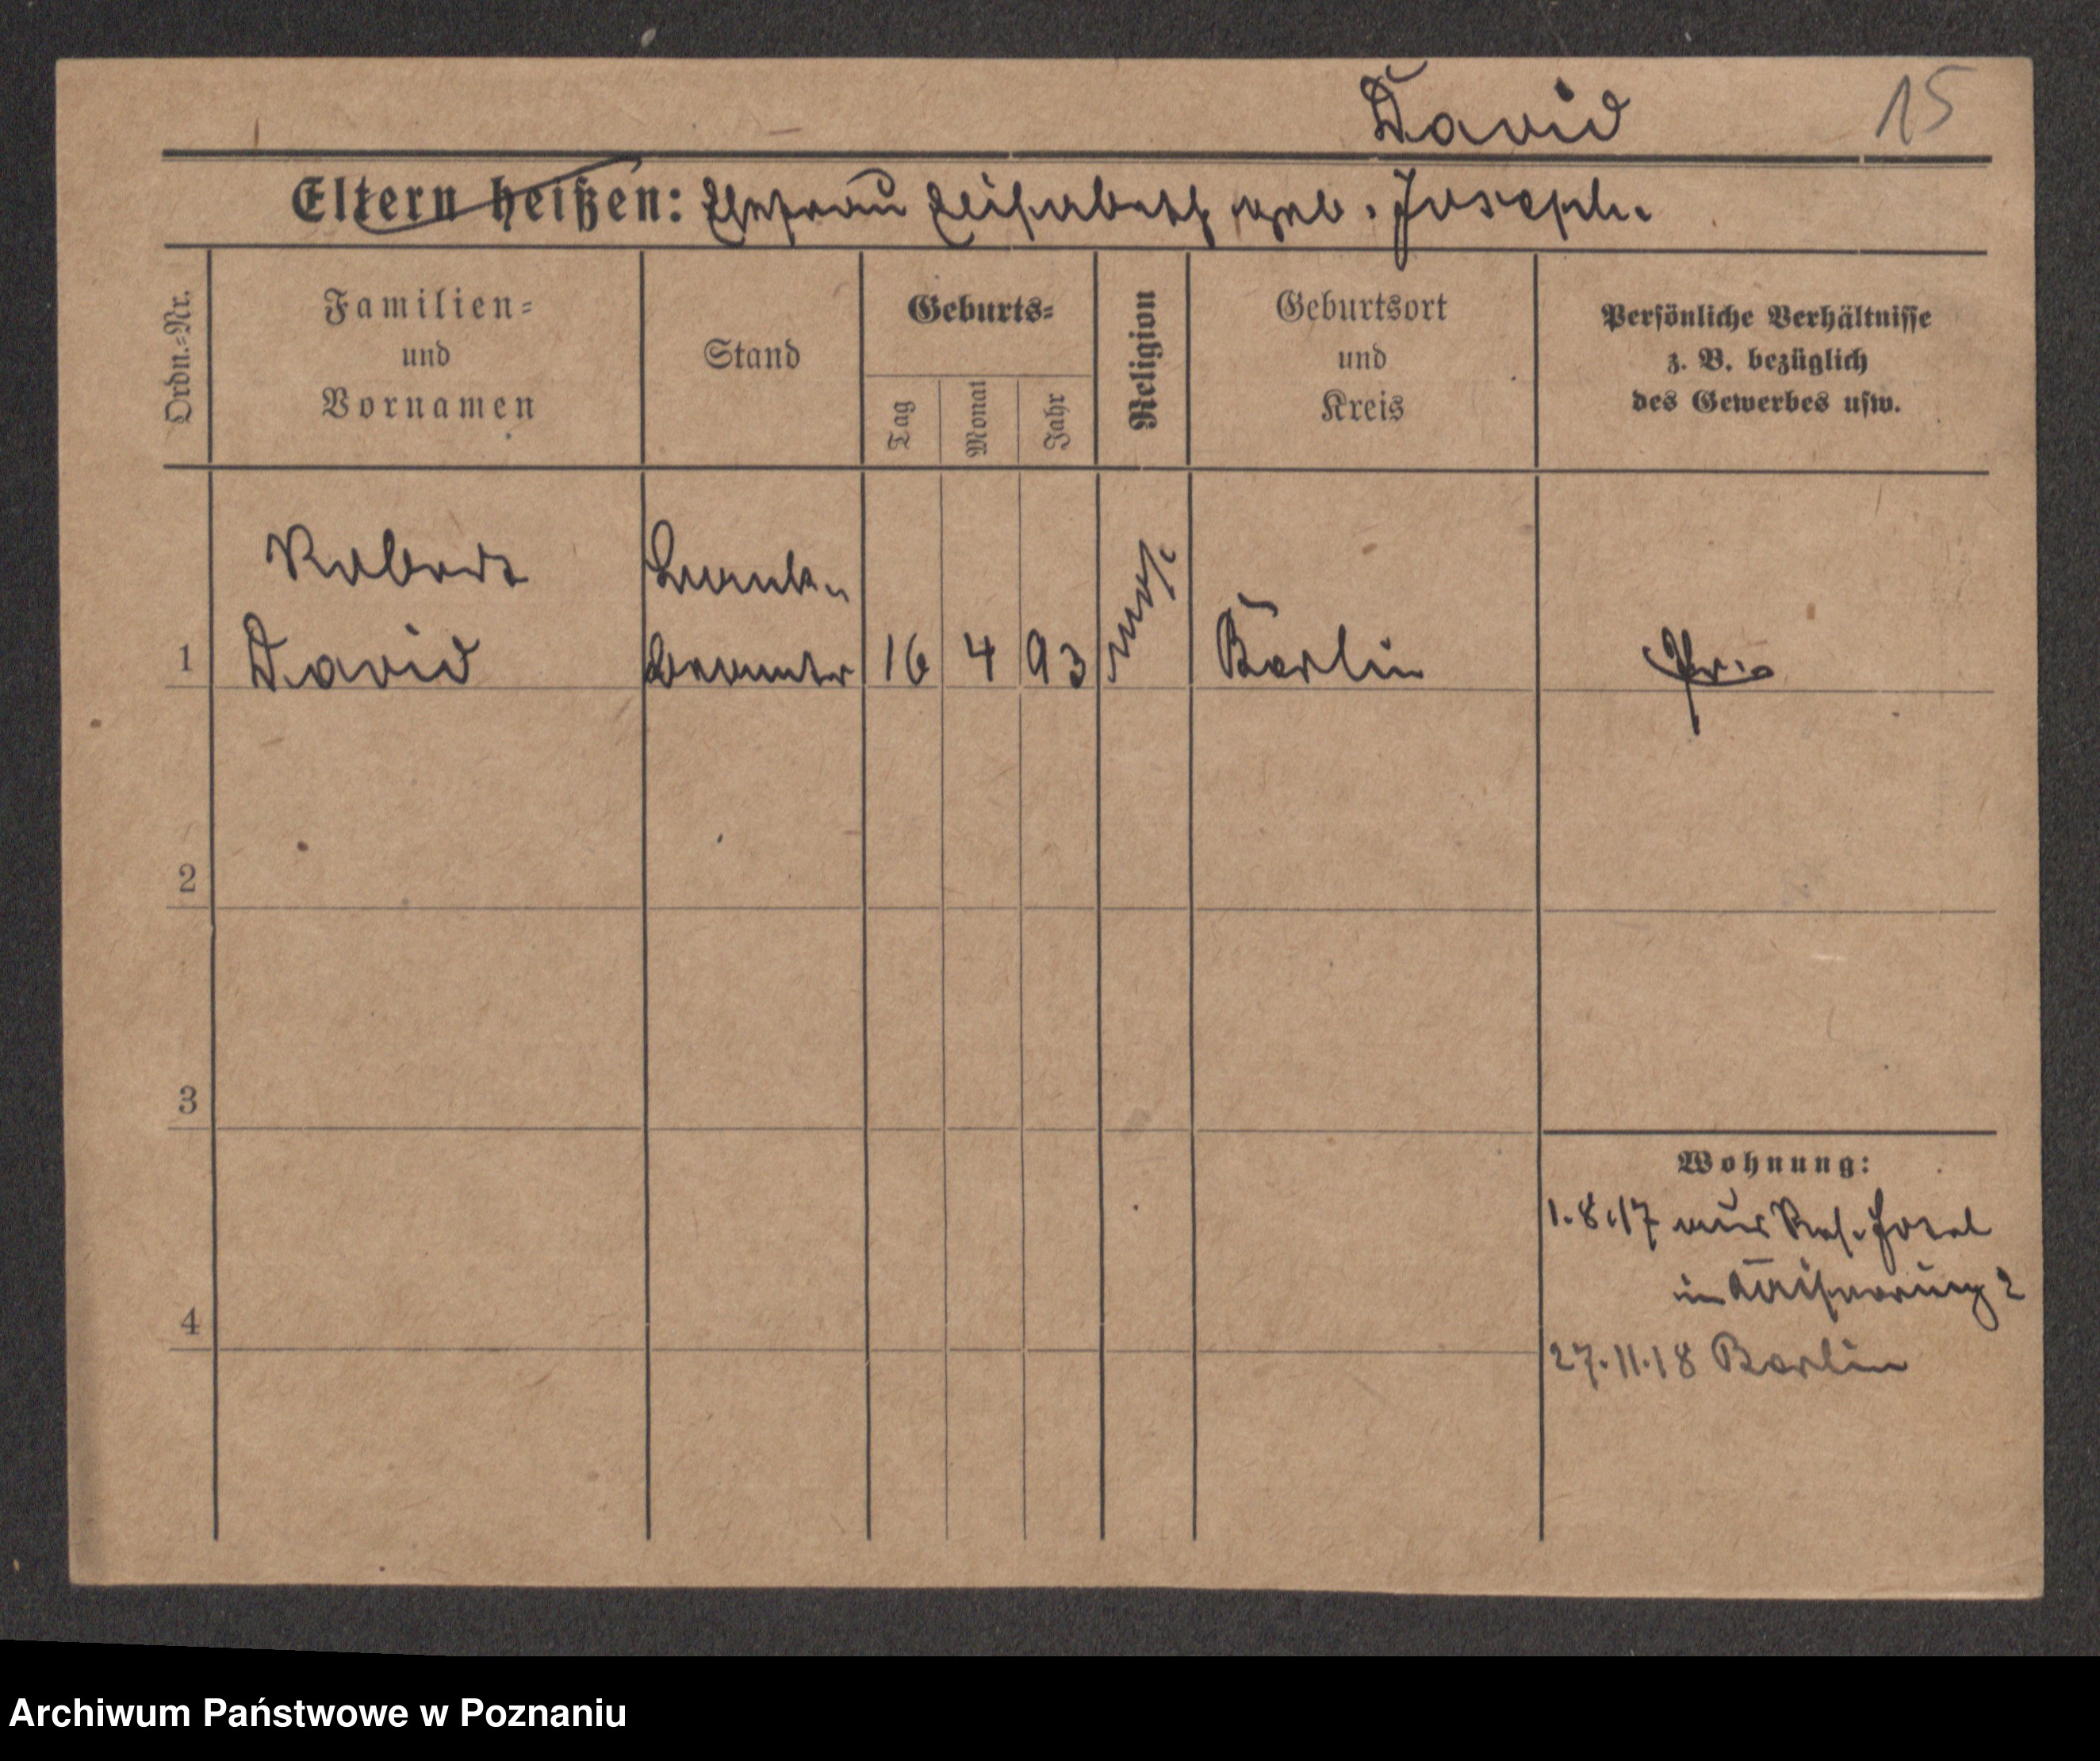 David 15
Eltern heißen: Ehefrau Elisabeth geb. Joseph.
Ordn.=Nr.
Familien=
und
Vornamen
Stand
Geburts=
Tag
Monat
Jahr
Religion
Geburtsort
und
Kreis
Persönliche Verhältnisse
z. B. bezüglich
des Gewerbes usw.
Robert
David
Bank-
beamter
1
16
4
93
mos.
Berlin
Pr.
2
3
4
Wohnung:
1.8.17 aus Res. Hotel
in Kaiserring 2
27.11.18 Berlin
Archiwum Państwowe w Poznaniu